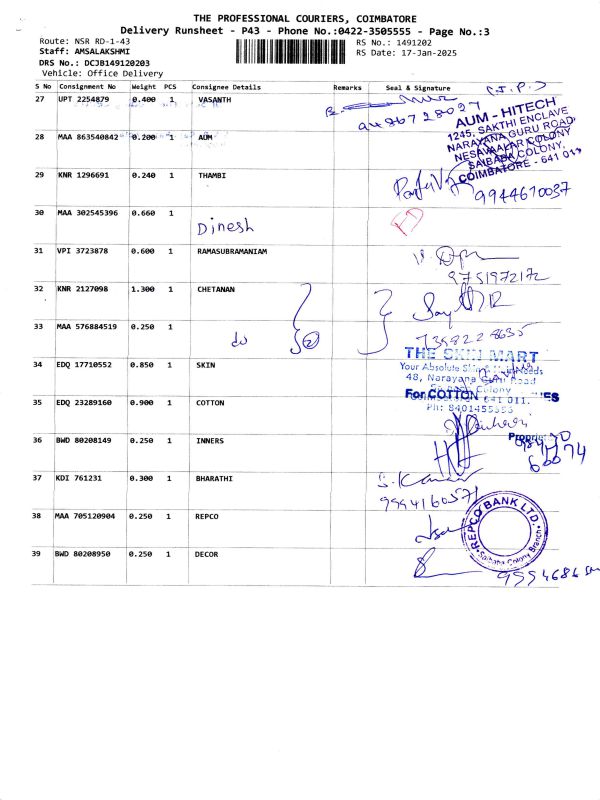 THE PROFESSIONAL COURIERS, COIMBATORE
Delivery Runsheet - P43 - Phone No.:0422-3505555 - Page No.:3
Route: NSR RD-1-43
RS No.: 1491202
Staff: AMSALAKSHMI
RS Date: 17-Jan-2025
DRS No.: DCJB149120203
Vehicle: Office Delivery
S No Consignment No Weight PCS Consignee Details Remarks Seal & Signature
27 UPT 2254879 0.400 1 VASANTH
28 MAA 863540842 0.200 1 AUM
AUM - HITECH
1245, SAKTHI ENCLAVE
NARAYANA GURU ROAD,
NESAVAALAR COLONY
SAIBABA COLONY,
COIMBATORE - 641 011
29 KNR 1296691 0.240 1 THAMBI
9944610037
30 MAA 302545396 0.660 1
Dinesh
31 VPI 3723878 0.600 1 RAMASUBRAMANIAM
9751972172
32 KNR 2127098 1.300 1 CHETANAN
33 MAA 576884519 0.250 1
do 2
7358228635
34 EDQ 17710552 0.850 1 SKIN
THE SKIN MART
Your Absolute Needs
48, Narayana Guru Road
Colony
641 011.
Ph: 8401455555
35 EDQ 23289160 0.900 1 COTTON
For COTTON
36 BWD 80208149 0.250 1 INNERS
37 KDI 761231 0.300 1 BHARATHI
S. Kumar
9994160571
38 MAA 705120904 0.250 1 REPCO
REPCO BANK LTD.
Saibaba Colony Branch
39 BWD 80208950 0.250 1 DECOR